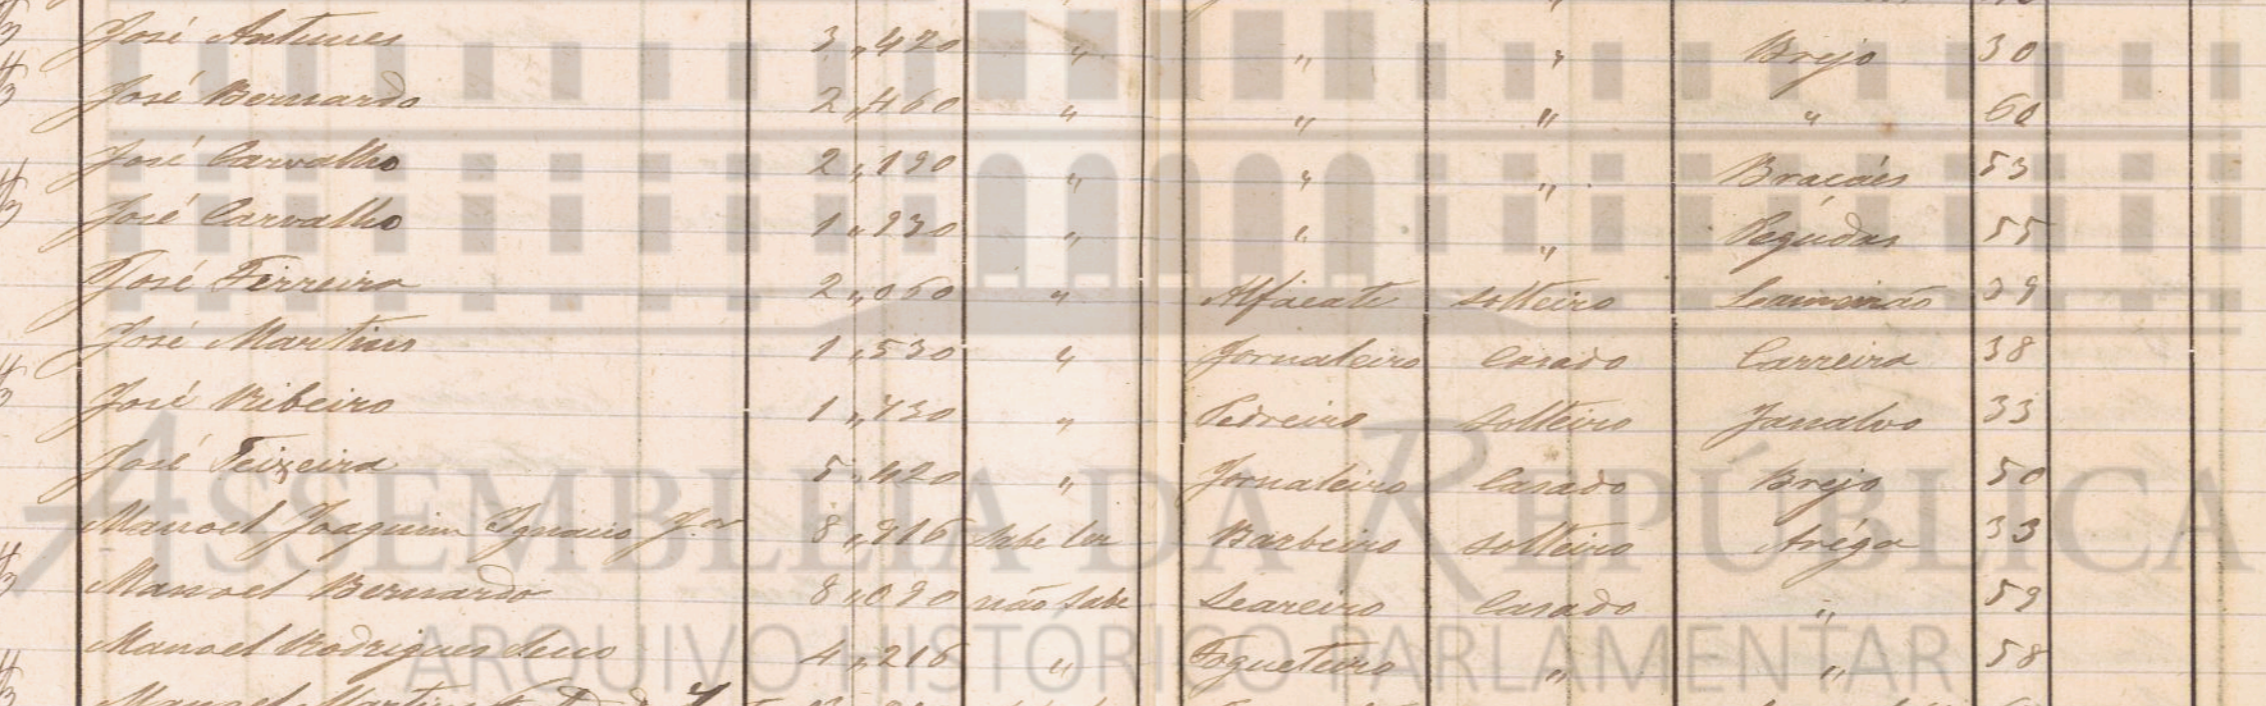 José Antunes 3,,420 " " " Brejo 30
José Bernardo 2,,460 " " " " 60
José Carvalho 2,,190 " " " Bracáes 53
José Carvalho 1,,930 " " " Pegúdas 55
José Ferreira 2,,060 " Alfaeate solteiro 39
José Martins 1,,530 " Jornaleiro Casado Carreira 38
José Ribeiro 1,,730 " Pedreiro Solteiro Janalvo 33
José Teixeira 5,,420 " Jornaleiro Casado Brejo 50
Manoel Joaquim Ignacio J.or 8,,916 Sabe ler Barbeiro solteiro Aréga 33
Manoel Bernardo 8,,090 não sabe Seareiro Casado " 59
Manoel Rodrigues Seco 4,,216 " Fogueteiro " " 58
ASSEMBLEIA DA REPÚBLICA
ARQUIVO HISTÓRICO PARLAMENTAR